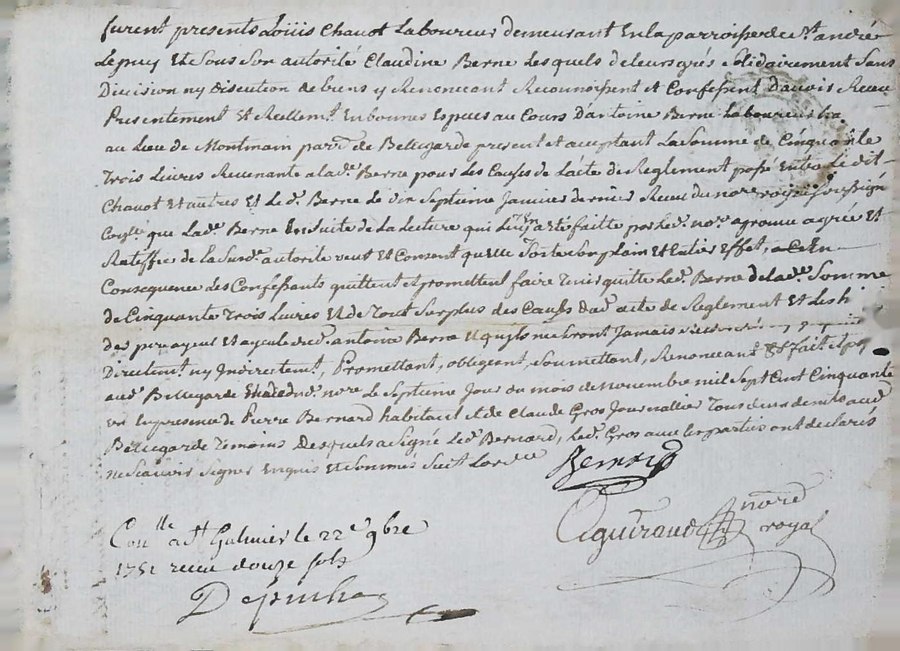 furent presents Loüis Chavot Laboureur demeurant En la parroisse de st. andré
Le puy Et sous Son autorité Claudine Berne Lesquels de leurs grés solidairement Sans
Division ny Discution de biens y Renoncant Reconnoissent et Confessent D'avoir Receu
Presentement Et Reellemt. En bonnes Especes au Cours D'antoine Berne Laboureur
au Lieu de Montmain parse. de Bellegarde present et acceptant La Somme de Cinquante
Trois Livres Revenante a lade. Berne pour les Causes de L'acte de Reglement passé Entre Le dit
Chavot Et autres Et Led. Berne Le dix Septieme Janvier dernier Receu du nore. royal soussigné
que Lade. Berne Ensuitte de La Lecture qui Luy En a eté faitte par led. nore. agrouue agrée Et
Ratiffie de la Susde. autorité veut Et Consent qu'elle Sorte Son plain Et Entier Effet, a C En
Consequence Les Confessants quittent Et promettent faire Tenir quitte Led. Berne de lade. Somme
de Cinquante Trois Livres Et de Tout Surplus des Causes dud. acte de Reglement Et Les
des per ayeul et ayeule dud. antoine Berne Et qu'ils ne Seront Jamais
Directemt. ny Indirectemt., Promettant, obligeant, Soumettant, Renoncant &c fait Et passé
aud. Bellegarde Etude dud. nore. Le Septieme Jour du mois de novembre mil Sept Cent Cinquante
un En presence de Pierre Bernard habitant Et de Claude Gros Journallier Tous deux aud.
Bellegarde Temoins Desquels a Signé Led. Bernard, Led. Gros avec Les parties ont declarés
ne Scavoir Signer Enquis Et Sommés Suivt. Lordce.
Bernard
Conlle a st Galmier le 22e 9bre
1751 receu douze sols
Aguiraud nore royal